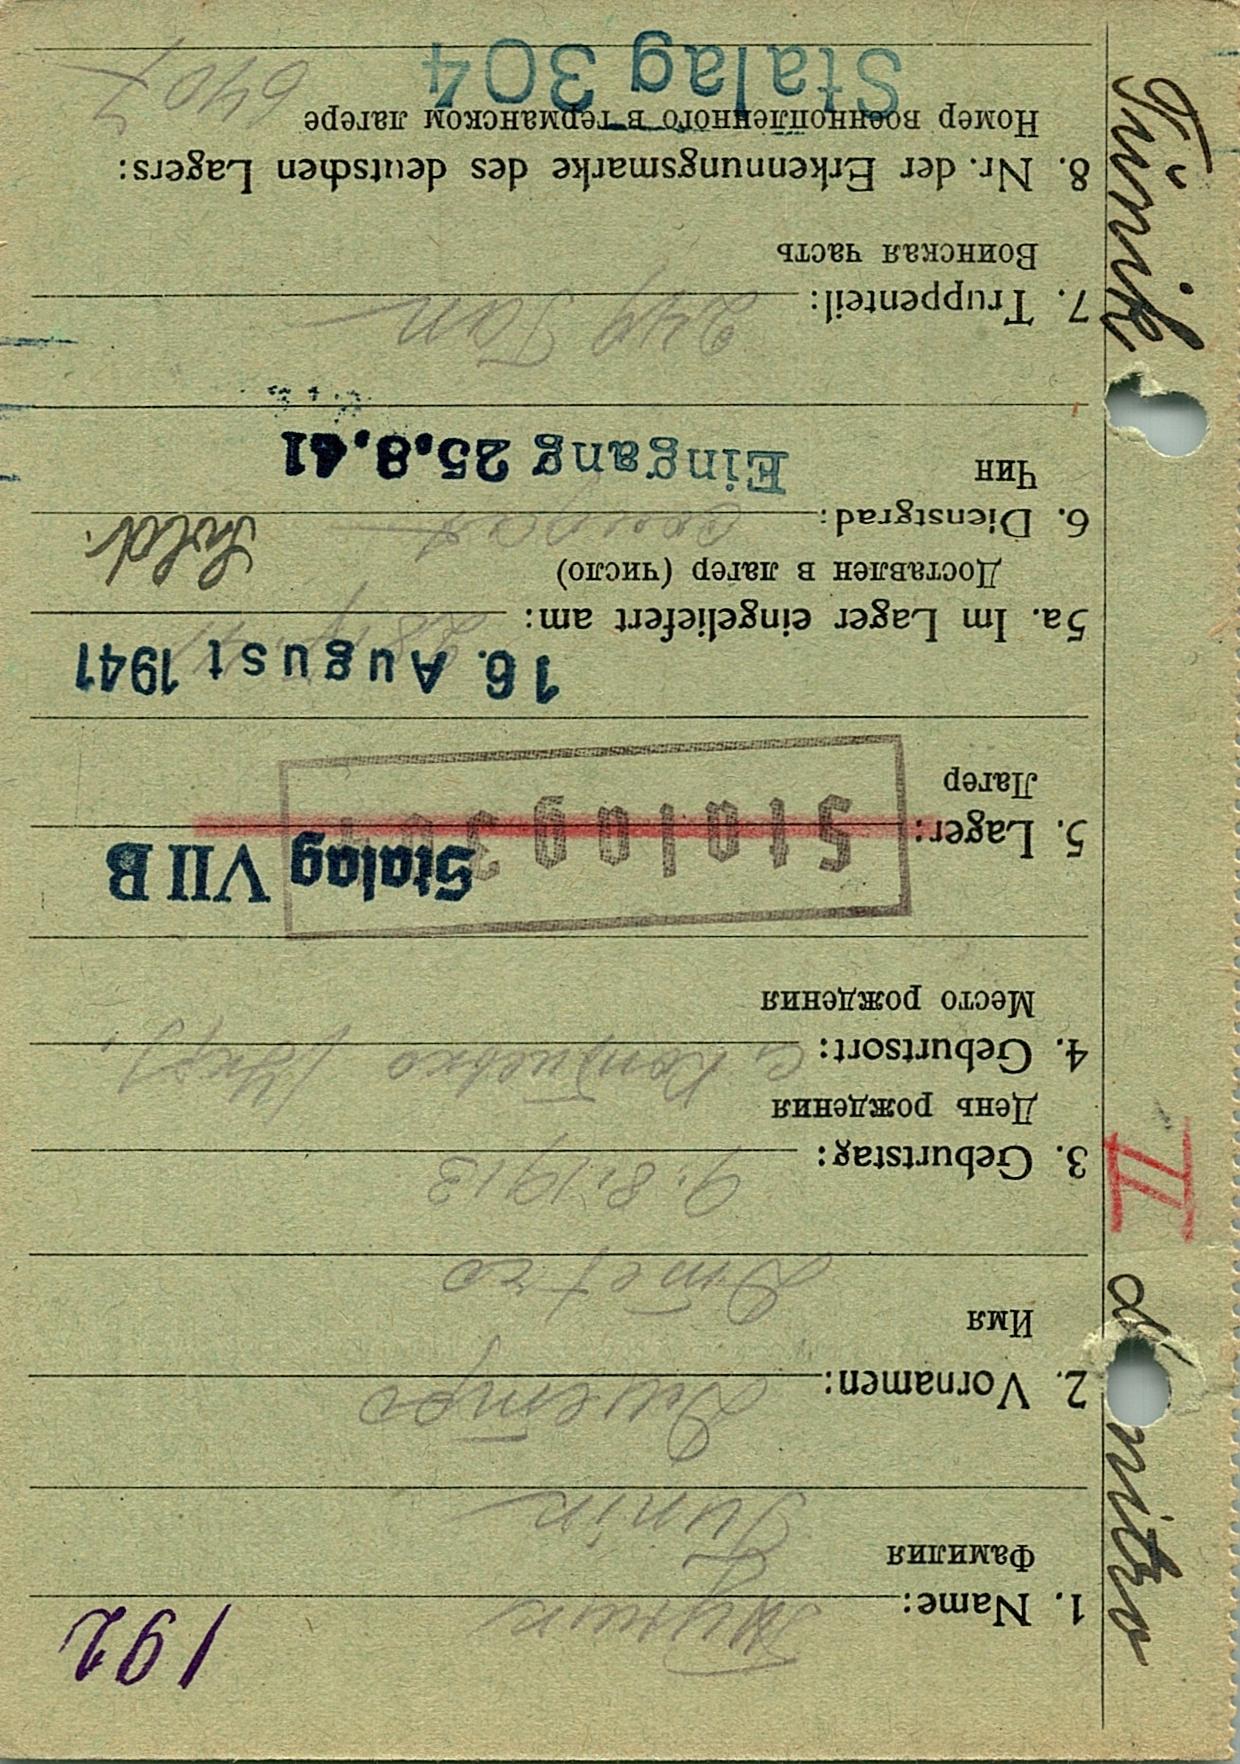 192
1. Name:
Фамилия
Tünik
2. Vornamen: Дмитро
Имя
Dmetro
3. Geburtstag: 9.8.1913
День рождения
4. Geburtsort:
Место рождения
5. Lager: Stalag 304
Stalag VII B
Лагер
16. August 1941
5a. Im Lager eingeliefert am:
Доставлен в лагер (число)
6. Dienstgrad: солдат Sold.
Чин
Eingang 25.8.41
7. Truppenteil:
Воинская часть
8. Nr. der Erkennungsmarke des deutschen Lagers:
Номер военнопленного в германском лагере
Stalag 304
Tünik
II
dmitro